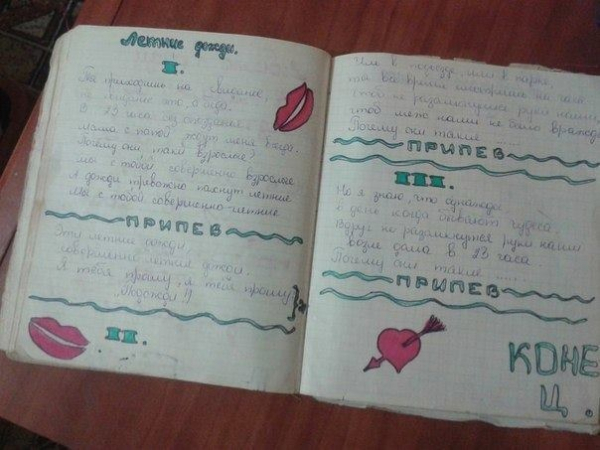 Летние дожди.
I.
Ты приходишь на свиданье,
В 23 часа без опозданья
мама с папой ждут меня всегда.
Почему они такие взрослые?
мы с тобой совершенно взрослые
А дожди тревожно пахнут летние
Мы с тобой совершенно-летние
ПРИПЕВ
Эти летние дожди,
совершенно летние дожди.
Я тебя прошу, я тебя прошу
Подожди !)
II.
Им к подъезду, нам к парку,
та во время смотрит на часы
чтоб не разомкнулись руки наши,
чтоб лето нашим не было врагом
Почему они такие .....
ПРИПЕВ
III.
Но я знаю, что однажды
в дне конца бывают чудеса
Вдруг не разомкнутся руки наши
возле дома в 23 часа
Почему они такие .....
ПРИПЕВ
КОНЕ
Ц.